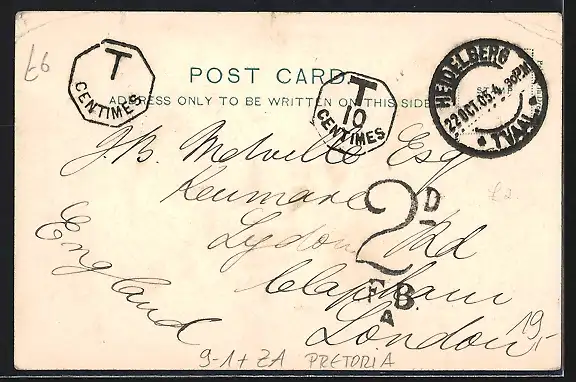 £6
T
CENTIMES
POST CARD.
ADDRESS ONLY TO BE WRITTEN ON THIS SIDE
T
10
CENTIMES
HEIDELBERG
22 OCT. 05. 4. 30PM
TVAL
J.B. Melville Esq
Kenmare
Lydon Rd
Clapham
London
England
2D
F B
A
£2.
19,-
9-1+ ZA PRETORIA